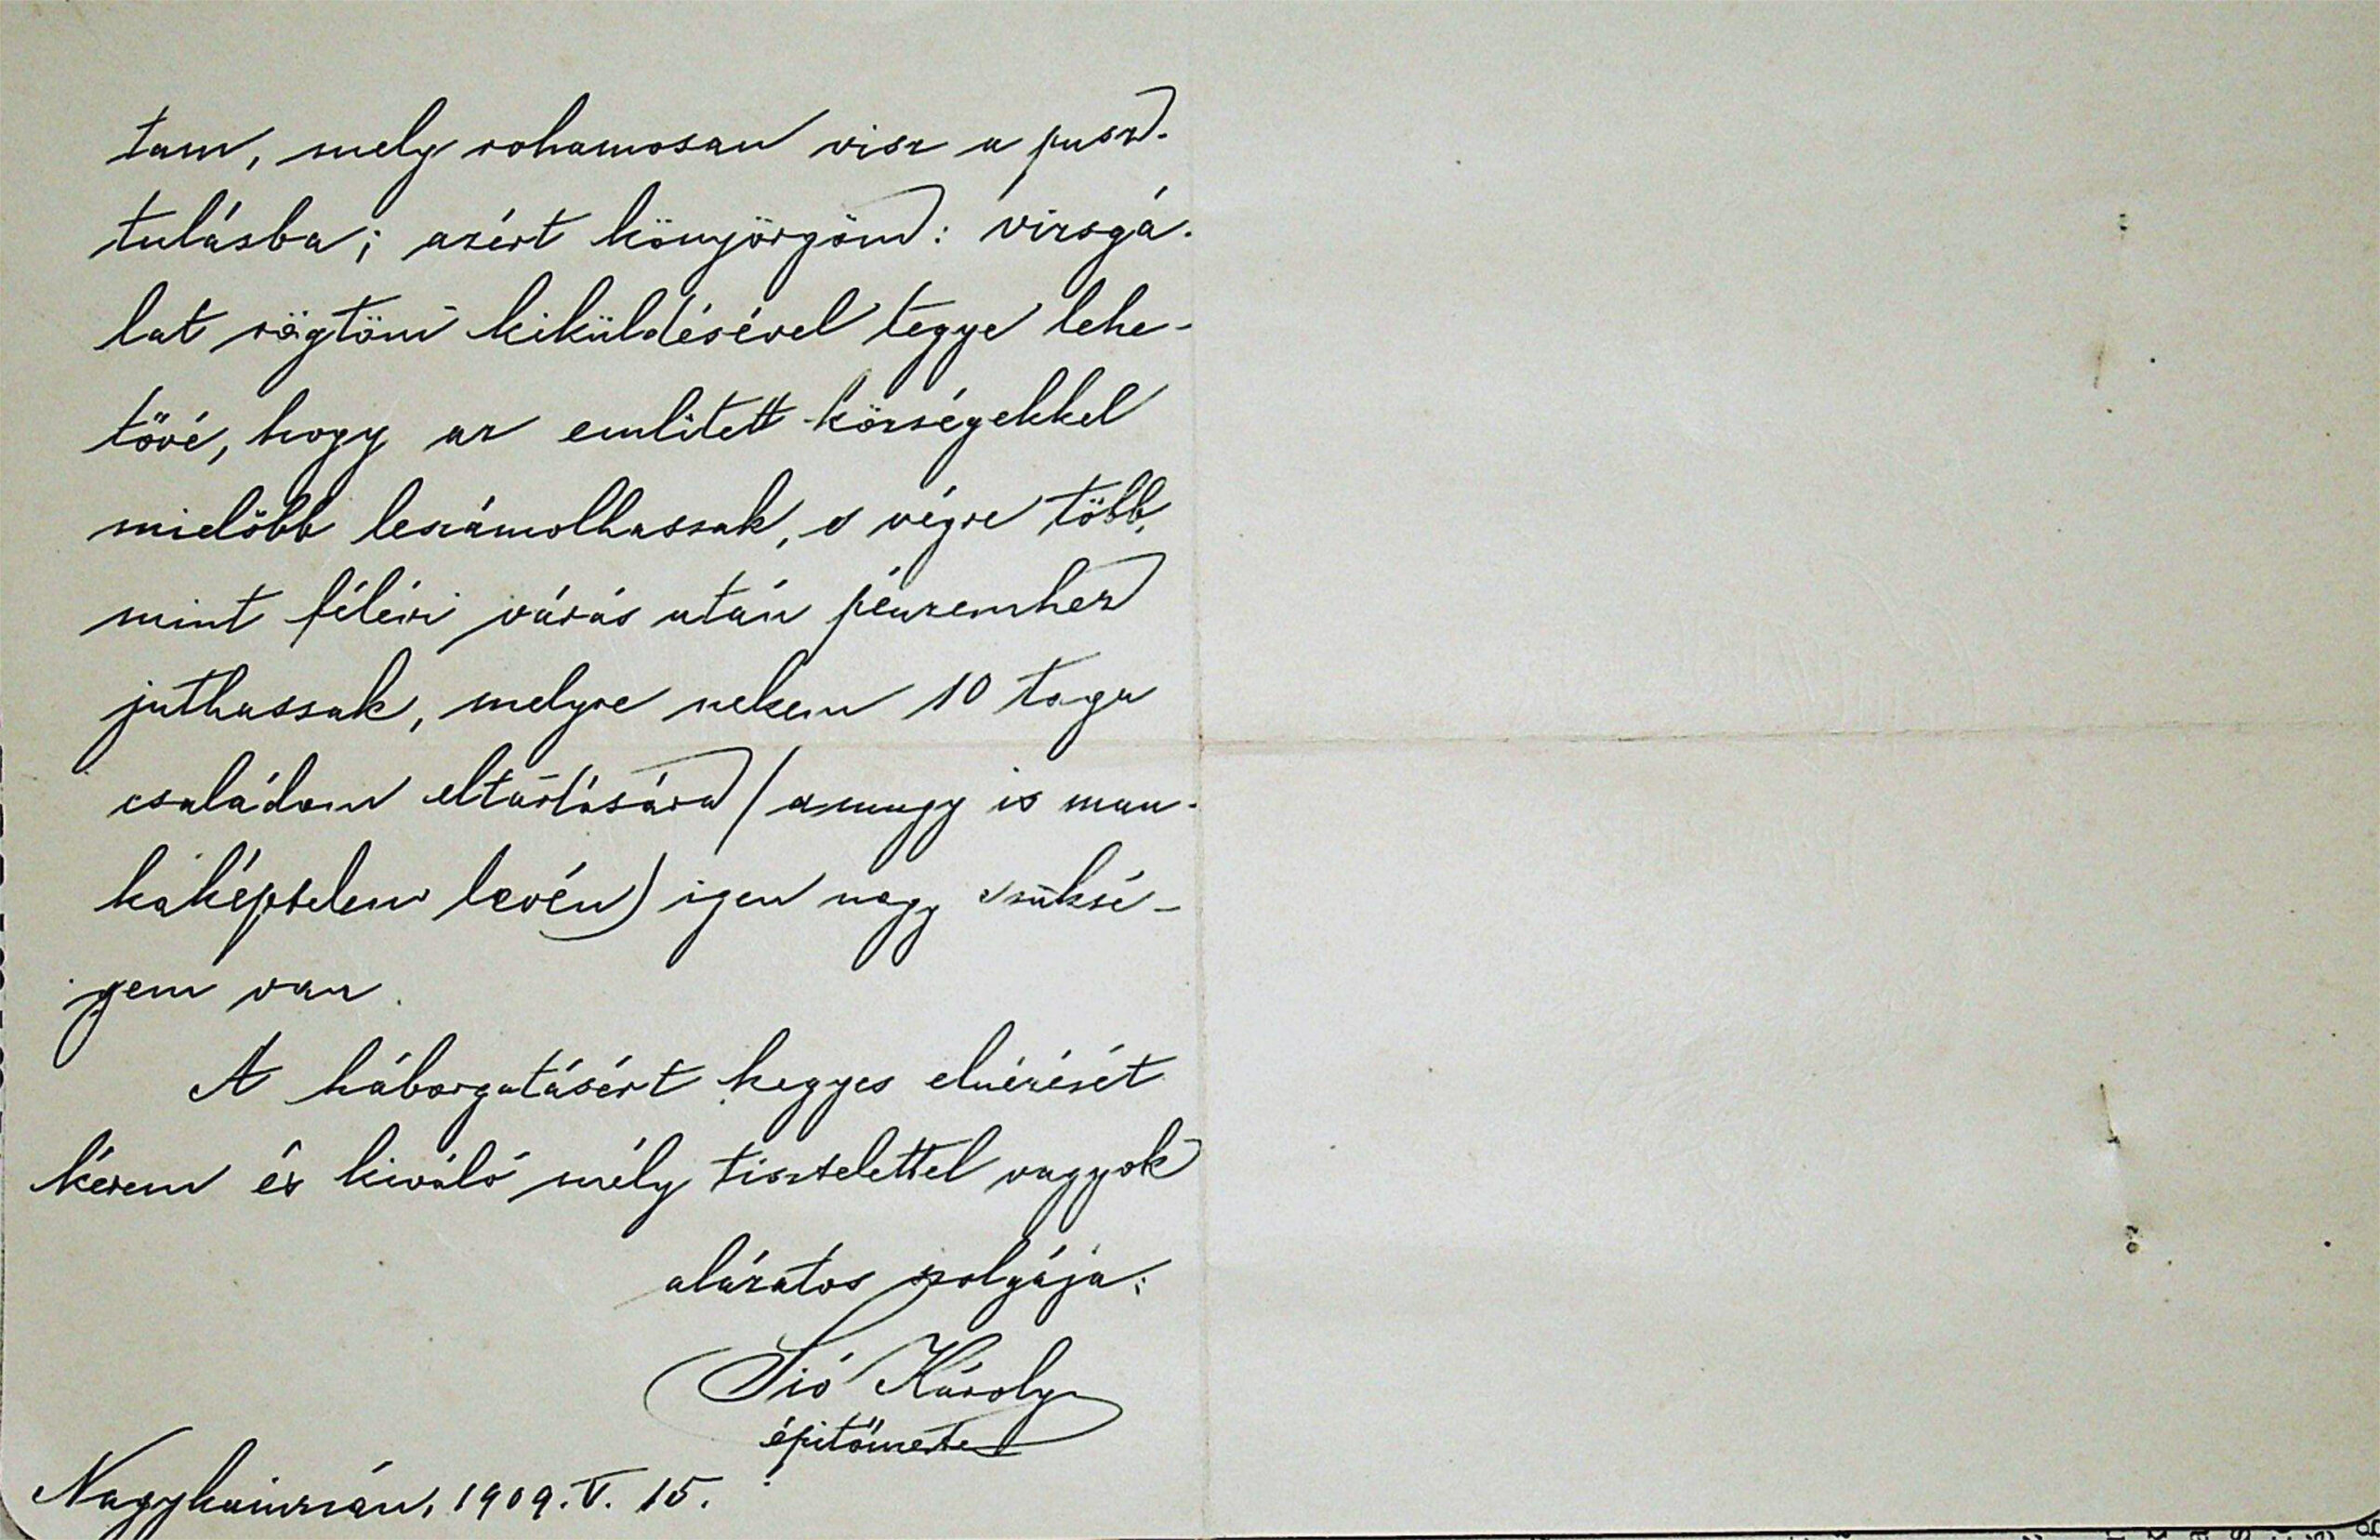 tam, mely rohamosan visz a pusz-
tulásba; azért könyörgöm: vizsgá-
lat rögtöni kiküldésével tegye lehe-
tővé, hogy az emlitett községekkel
mielőbb leszámolhassak, s végre több,
mint félévi várás után pénzemhez
juthassak, melyre nekem 10 tagu
családom eltartására (amugy is mun-
kaképtelen levén) igen nagy szüksé-
gem van.
A háborgatásért kegyes elnézését
kérem és kiváló mély tisztelettel vagyok
alázatos szolgája:
Sió Károly
épitőmester
Nagykanizsán, 1909. V. 15.